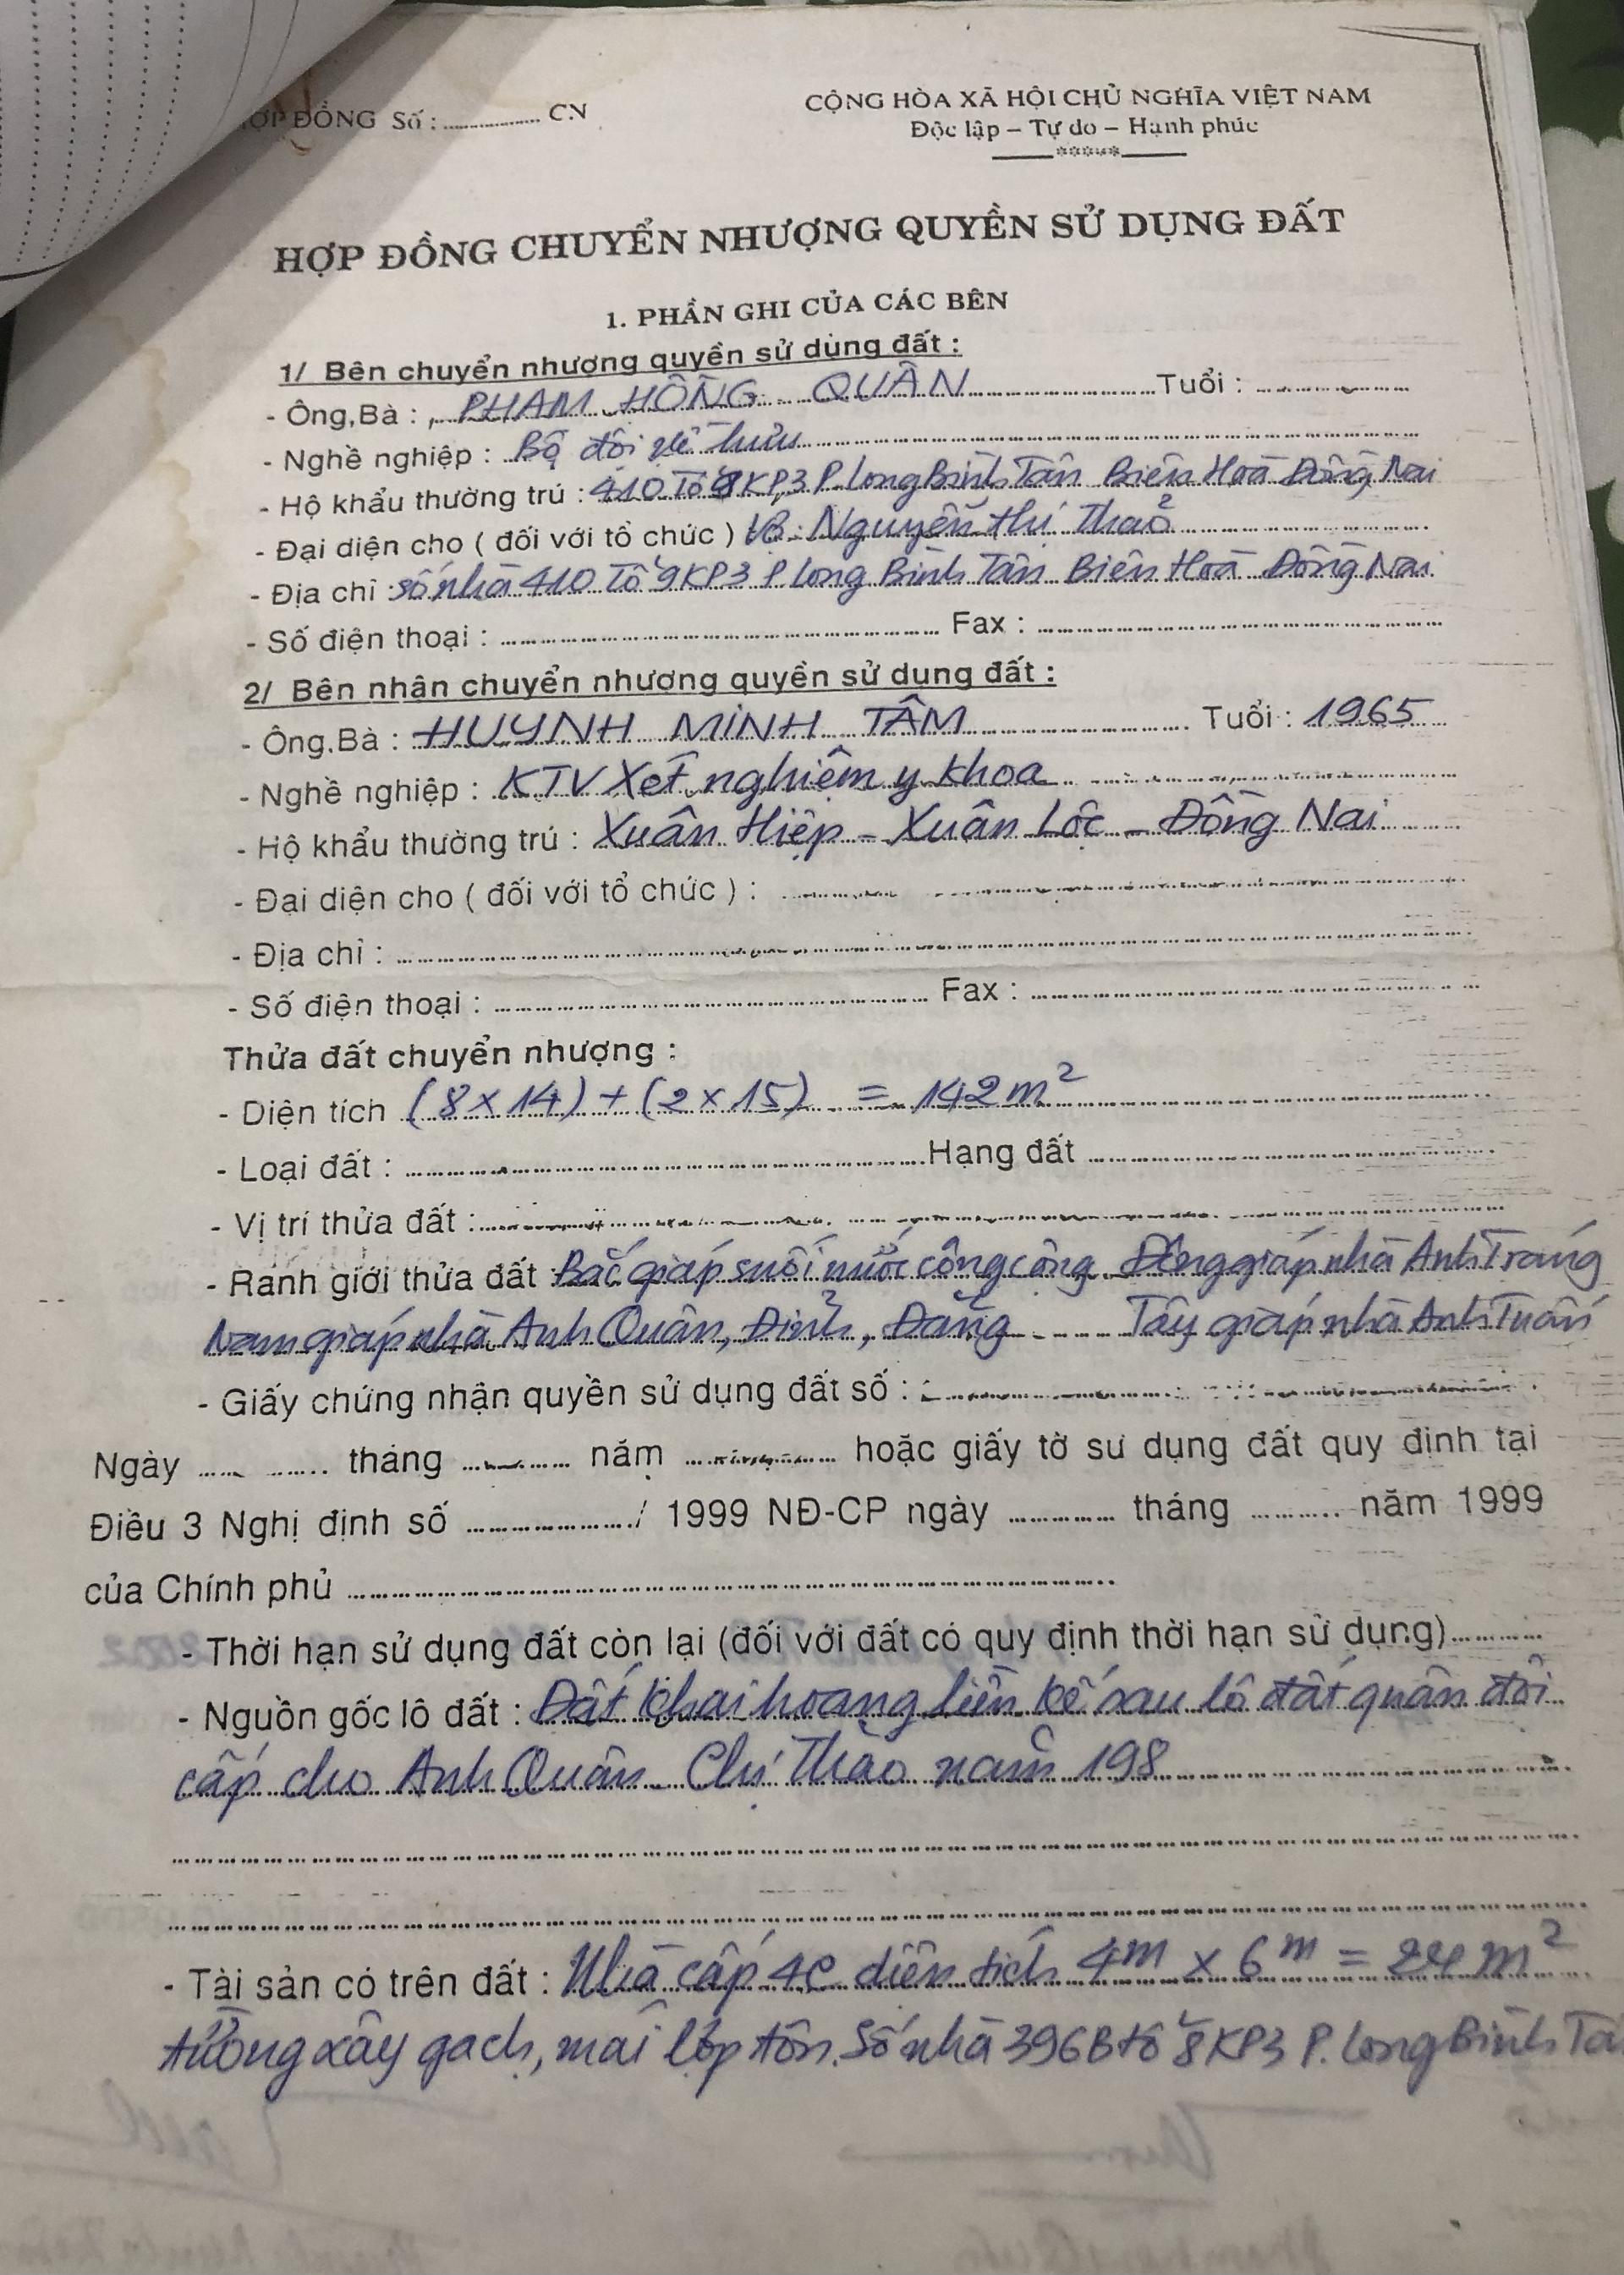 HỢP ĐỒNG Số : ............... CN
CỘNG HÒA XÃ HỘI CHỦ NGHĨA VIỆT NAM
Độc lập – Tự do – Hạnh phúc
HỢP ĐỒNG CHUYỂN NHƯỢNG QUYỀN SỬ DỤNG ĐẤT
1. PHẦN GHI CỦA CÁC BÊN
1/ Bên chuyển nhượng quyền sử dụng đất :
- Ông,Bà : PHẠM HỒNG QUÂN ............... Tuổi : ...............
- Nghề nghiệp : Bộ đội về hưu ...............
- Hộ khẩu thường trú : 410 Tổ 9 KP3 P. Long Bình Tân Biên Hoà Đồng Nai
- Đại diện cho ( đối với tổ chức ) Vợ: Nguyễn thị Thảo ...............
- Địa chỉ : số nhà 410 Tổ 9 KP3 P Long Bình Tân Biên Hoà Đồng Nai
- Số điện thoại : ............... Fax : ...............
2/ Bên nhận chuyển nhượng quyền sử dụng đất :
- Ông.Bà : HUỲNH MINH TÂM ............... Tuổi : 1965
- Nghề nghiệp : KTV Xét nghiệm y khoa ...............
- Hộ khẩu thường trú : Xuân Hiệp - Xuân Lộc - Đồng Nai
- Đại diện cho ( đối với tổ chức ) : ...............
- Địa chỉ : ...............
- Số điện thoại : ............... Fax : ...............
Thửa đất chuyển nhượng :
- Diện tích (8 x 14) + (2 x 15) = 142 m²
- Loại đất : ............... Hạng đất ...............
- Vị trí thửa đất : ...............
- Ranh giới thửa đất : Bắc giáp suối nước công cộng Đông giáp nhà Anh Tráng
Nam giáp nhà Anh Quân, Định, Đằng ...... Tây giáp nhà Anh Tuấn
- Giấy chứng nhận quyền sử dụng đất số : ...............
Ngày ............ tháng ............ năm ............ hoặc giấy tờ sư dụng đất quy định tại
Điều 3 Nghị định số ............... / 1999 NĐ-CP ngày ............ tháng ............ năm 1999
của Chính phủ ...............
- Thời hạn sử dụng đất còn lại (đối với đất có quy định thời hạn sử dụng)............
- Nguồn gốc lô đất : Đất khai hoang liền kề sau lô đất quân đội
cấp cho Anh Quân Chị Thảo năm 198 ...............
- Tài sản có trên đất : Nhà cấp 4C diện tích 4m x 6m = 24 m²
tường xây gạch, mái lợp tôn. Số nhà 396B tổ 8 KP3 P. Long Bình Tâ